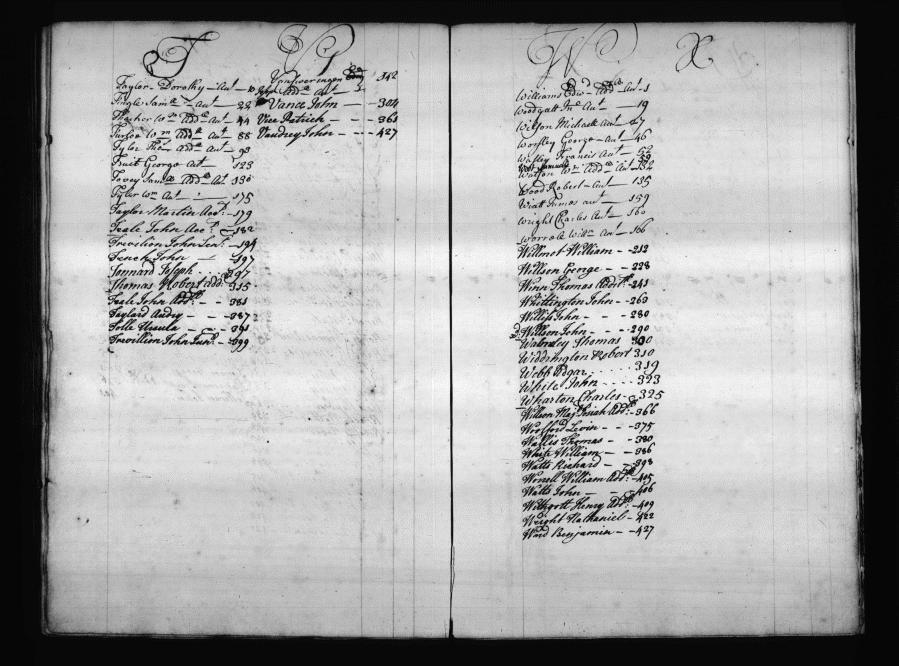 T
Taylor Dorothy Acct — 10
Tingle Saml Acct — 22
Wm Addl Acct 44
Wm Addl Acct 88
Tyler Thos Addl Acct — 93
Truit George Act — 123
Tovey Saml Addl Act 130
Tyler Wm Act — 175
Taylor Martin Acct — 179
Teale John Acct — 182
Trevilion John Senr — 194
Tench John — 197
Tennard Joseph 297
Thomas Robert Addl 315
Teale John Addl - - 381
Taylard Audry - - - 387
Tolle Ursula - - - 391
Trevillion John Junr - 399
V
Vansweringen 342
Addl Act
Vance John — - 304
Vice Patrick - - - 361
Vaudrey John - - - 427
W
Williams Edwd Addl Act - 1
Woodgatt Jno Act — 19
Wilson Michael Act 27
Worsley George Act 46
Francis Act — 52
Samuel 59
Watson Wm Addl Act 132
Wood Robert Act — 135
Wiatt Act — 159
Wright Charles Act — 160
Worrall Willm Act — 166
Willmot William - - 212
Willson George - - 228
Winn Thomas 241
Whittington John - - 263
Williss John - - - 280
Willson John - - - 290
Walmsley Thomas 300
Widdrington Robert 310
Webb Edgar 319
White John - - - - 323
Wharton Charles - 325
Willson Majr Josiah Addl - 366
Woolford Levin - - - 375
Wallis Thomas - - 380
White William - - 386
Watts Richard - - 398
Worrell William Addl - 405
Watts John - - - 406
Withgott Henry Addl - 409
Wright Nathaniel - 422
Ward Benjamin - - 427
X